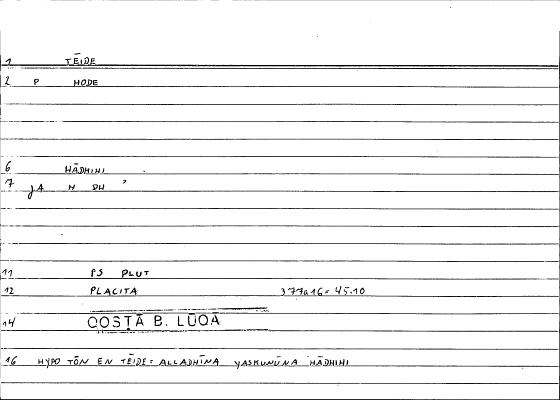 1 TĒIDE
2 P HODE
6 HĀDHIHI
7 JA H DH ʾ
11 PS PLUT
12 PLACITA 377a16 = 45.10
14 QOSṬĀ B. LŪQĀ
16 HYPO TŌN EN TĒIDE = ALLADHĪNA YASKUNŪNA HĀDHIHI